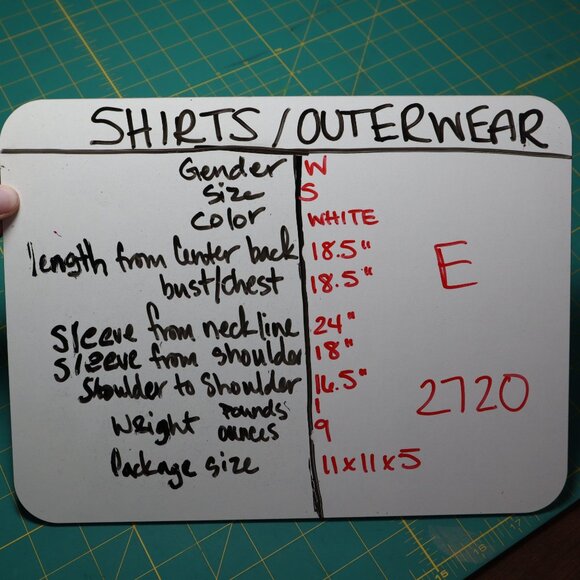 SHIRTS / OUTERWEAR
Gender W
size S
color WHITE
length from Center back 18.5"
bust/chest 18.5"
E
Sleeve from neckline 24"
Sleeve from shoulder 18"
Shoulder to Shoulder 16.5"
2720
Weight pounds 1
ounces 9
Package size 11x11x5